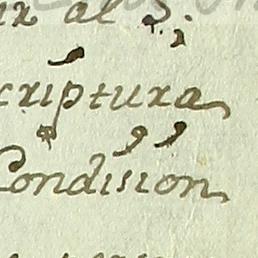 ir al S.
scriptura,
Condision,